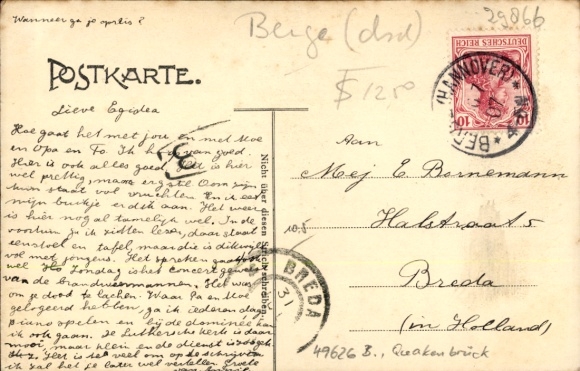 Wanneer ga je op reis?
Berge (dsd)
29866
POSTKARTE.
$ 12.50
DEUTSCHES REICH
10 10
(HANNOVER)
BREDA
Nicht über diesen Strich schreiben.
10.5
Lieve Egidea
Hoe gaat het met jou en met Moe
en Opa en To. Ik heel goed.
Hier is ook alles goed. Het is hier
wel prettig, maar Oom zijn
tuin staat vol vruchten. In
mijn buikje er dik aan. Het weer
is hier nogal tamelijk wel. In de
voortuin ga ik zitten lezen, daar staat
een stoel en tafel, maar die is dikwijls
vol met jongens. Het spreken gaat
wel. Zondag is het concert geweest
van de brandweermannen. Het was
om je dood te lachen. Waar Pa en Moe
gelogeerd hebben, ga ik iederen dag
piano spelen en bij de dominee kan
ik ook gaan. De Luthersche kerk is daar
mooi, maar klein en de dienst is
Het is te veel om op te schrijven
ik zal het je later wel vertellen. Groete
Aan
Mej E. Bornemann
Halstraat 5
Breda
(in Holland)
49626 B., Quakenbrück